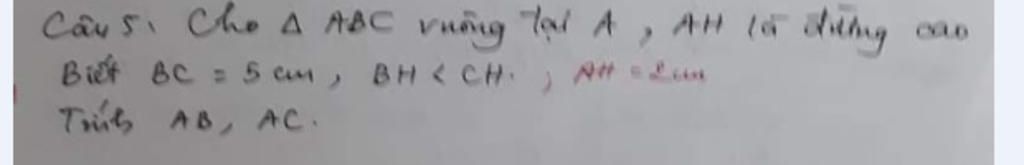 Câu 5. Cho Δ ABC vuông tại A, AH là đường cao
Biết BC = 5 cm, BH < CH., AH = 2 cm
Tính AB, AC.